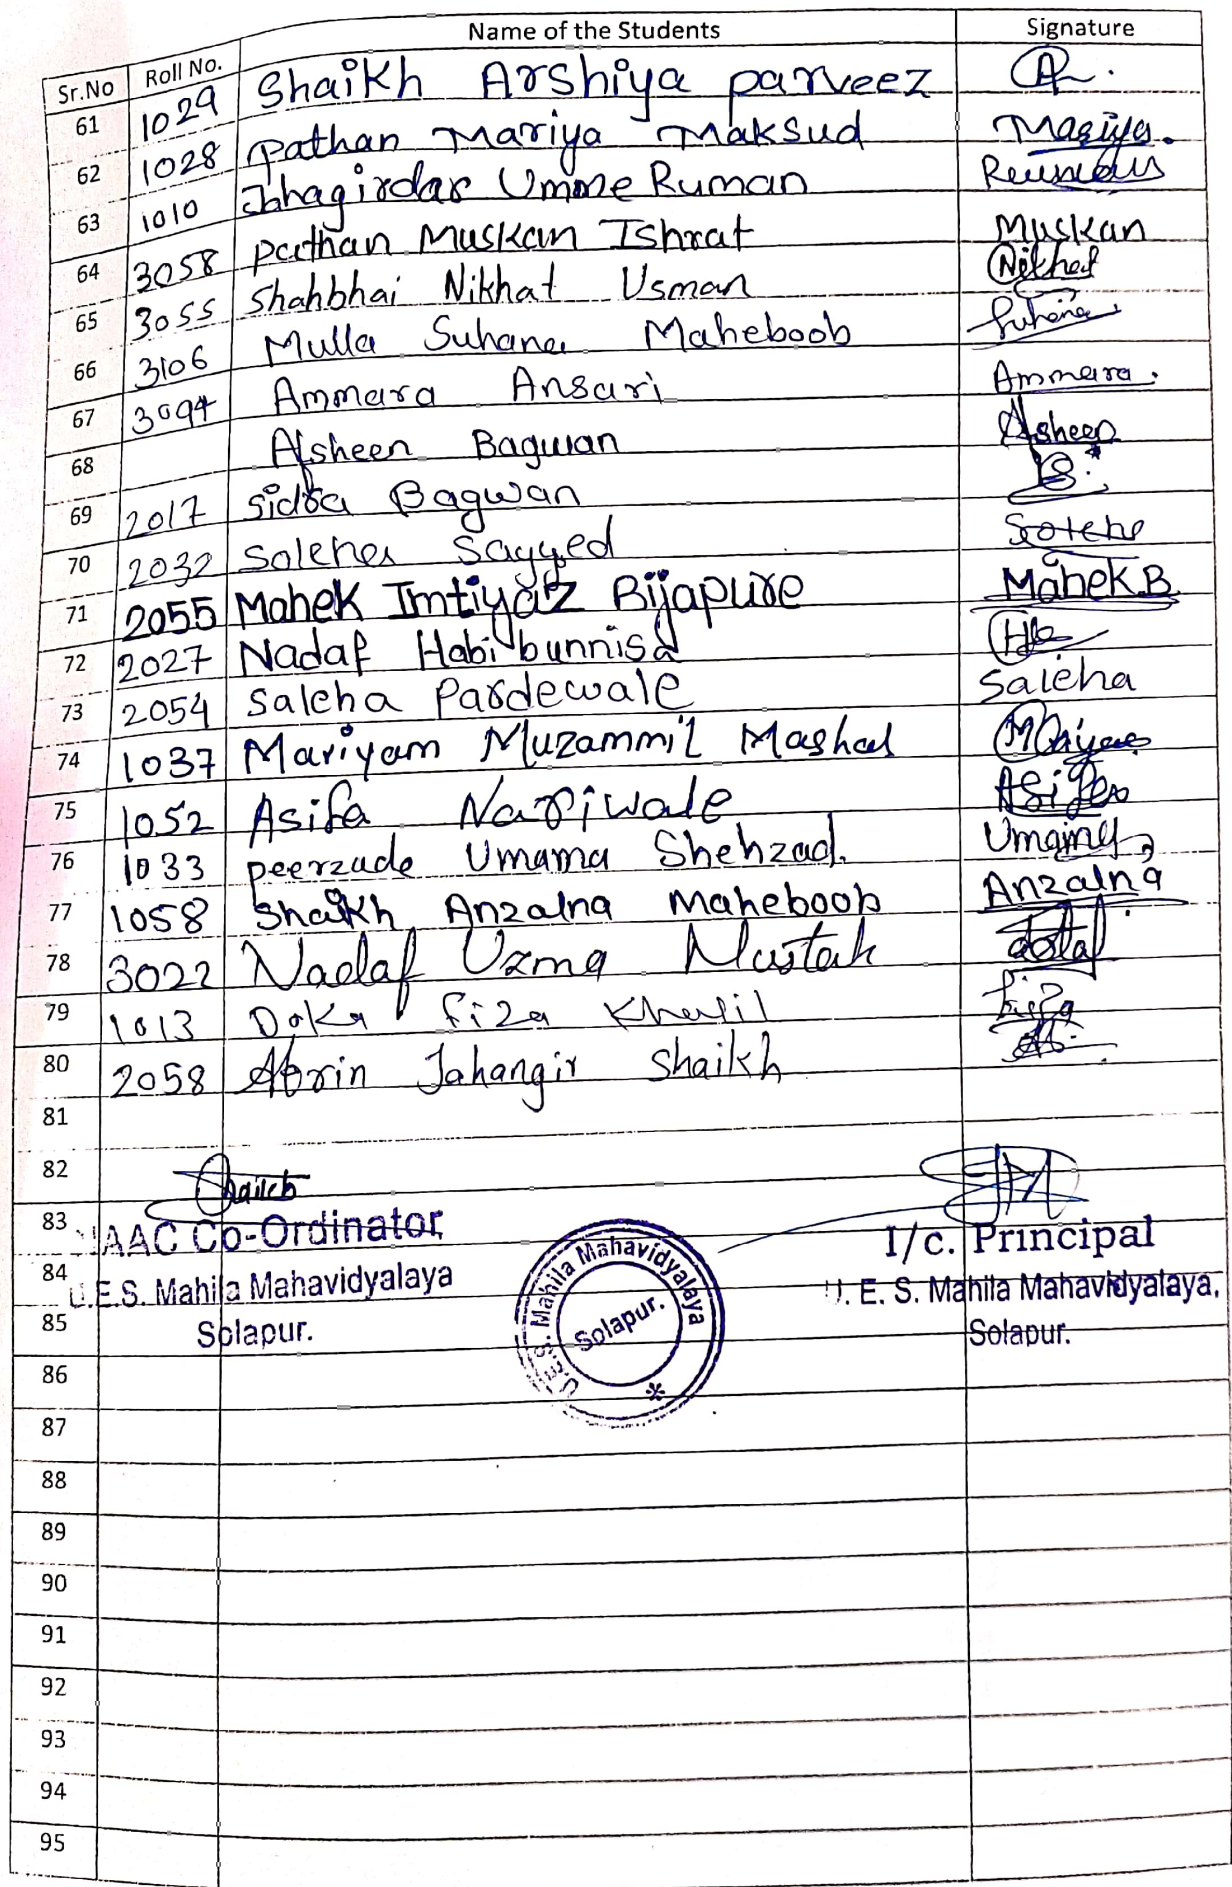 Sr.No Roll No. Name of the Students Signature
61 1029 Shaikh Arshiya parveez
62 1028 pathan Mariya Maksud Mariya.
63 1010 Jahagirdar Umme Ruman
64 3058 pathan Muskan Ishrat Muskan
65 3055 Shahbhai Nikhat Usman Nikhat
66 3106 Mulla Suhana Maheboob Suhana
67 3094 Ammara Ansari Ammara.
68 Afsheen Bagwan Afsheen
69 2017 Sidra Bagwan
70 2032 Saleha Sayyed
71 2055 Mahek Imtiyaz Bijapure Mahek.B
72 2027 Nadaf Habibunnisa
73 2054 Saleha Pardewale Saleha
74 1037 Mariyam Muzammil Mashal
75 1052 Asifa Nariwale Asifa
76 1033 peerzade Umama Shehzad.
77 1058 Shaikh Anzalna Maheboob Anzalna
78 3022 Nadaf Uzma Mustak
79 1013 Doka fiza Khalil
80 2058 Afrin Jahangir Shaikh
81
82
83
84
85
86
87
88
89
90
91
92
93
94
95
NAAC Co-Ordinator
U.E.S. Mahila Mahavidyalaya
Solapur.
U.E.S. Mahila Mahavidyalaya
Solapur.
I/c. Principal
U. E. S. Mahila Mahavidyalaya,
Solapur.